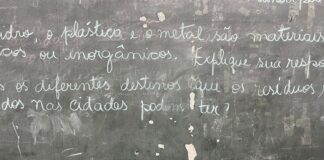 idro, o plástico e o metal são materiais
icos ou inorgânicos. Explique sua respo
s os diferentes destinos que os resíduos s
dos nas cidades podem ter?